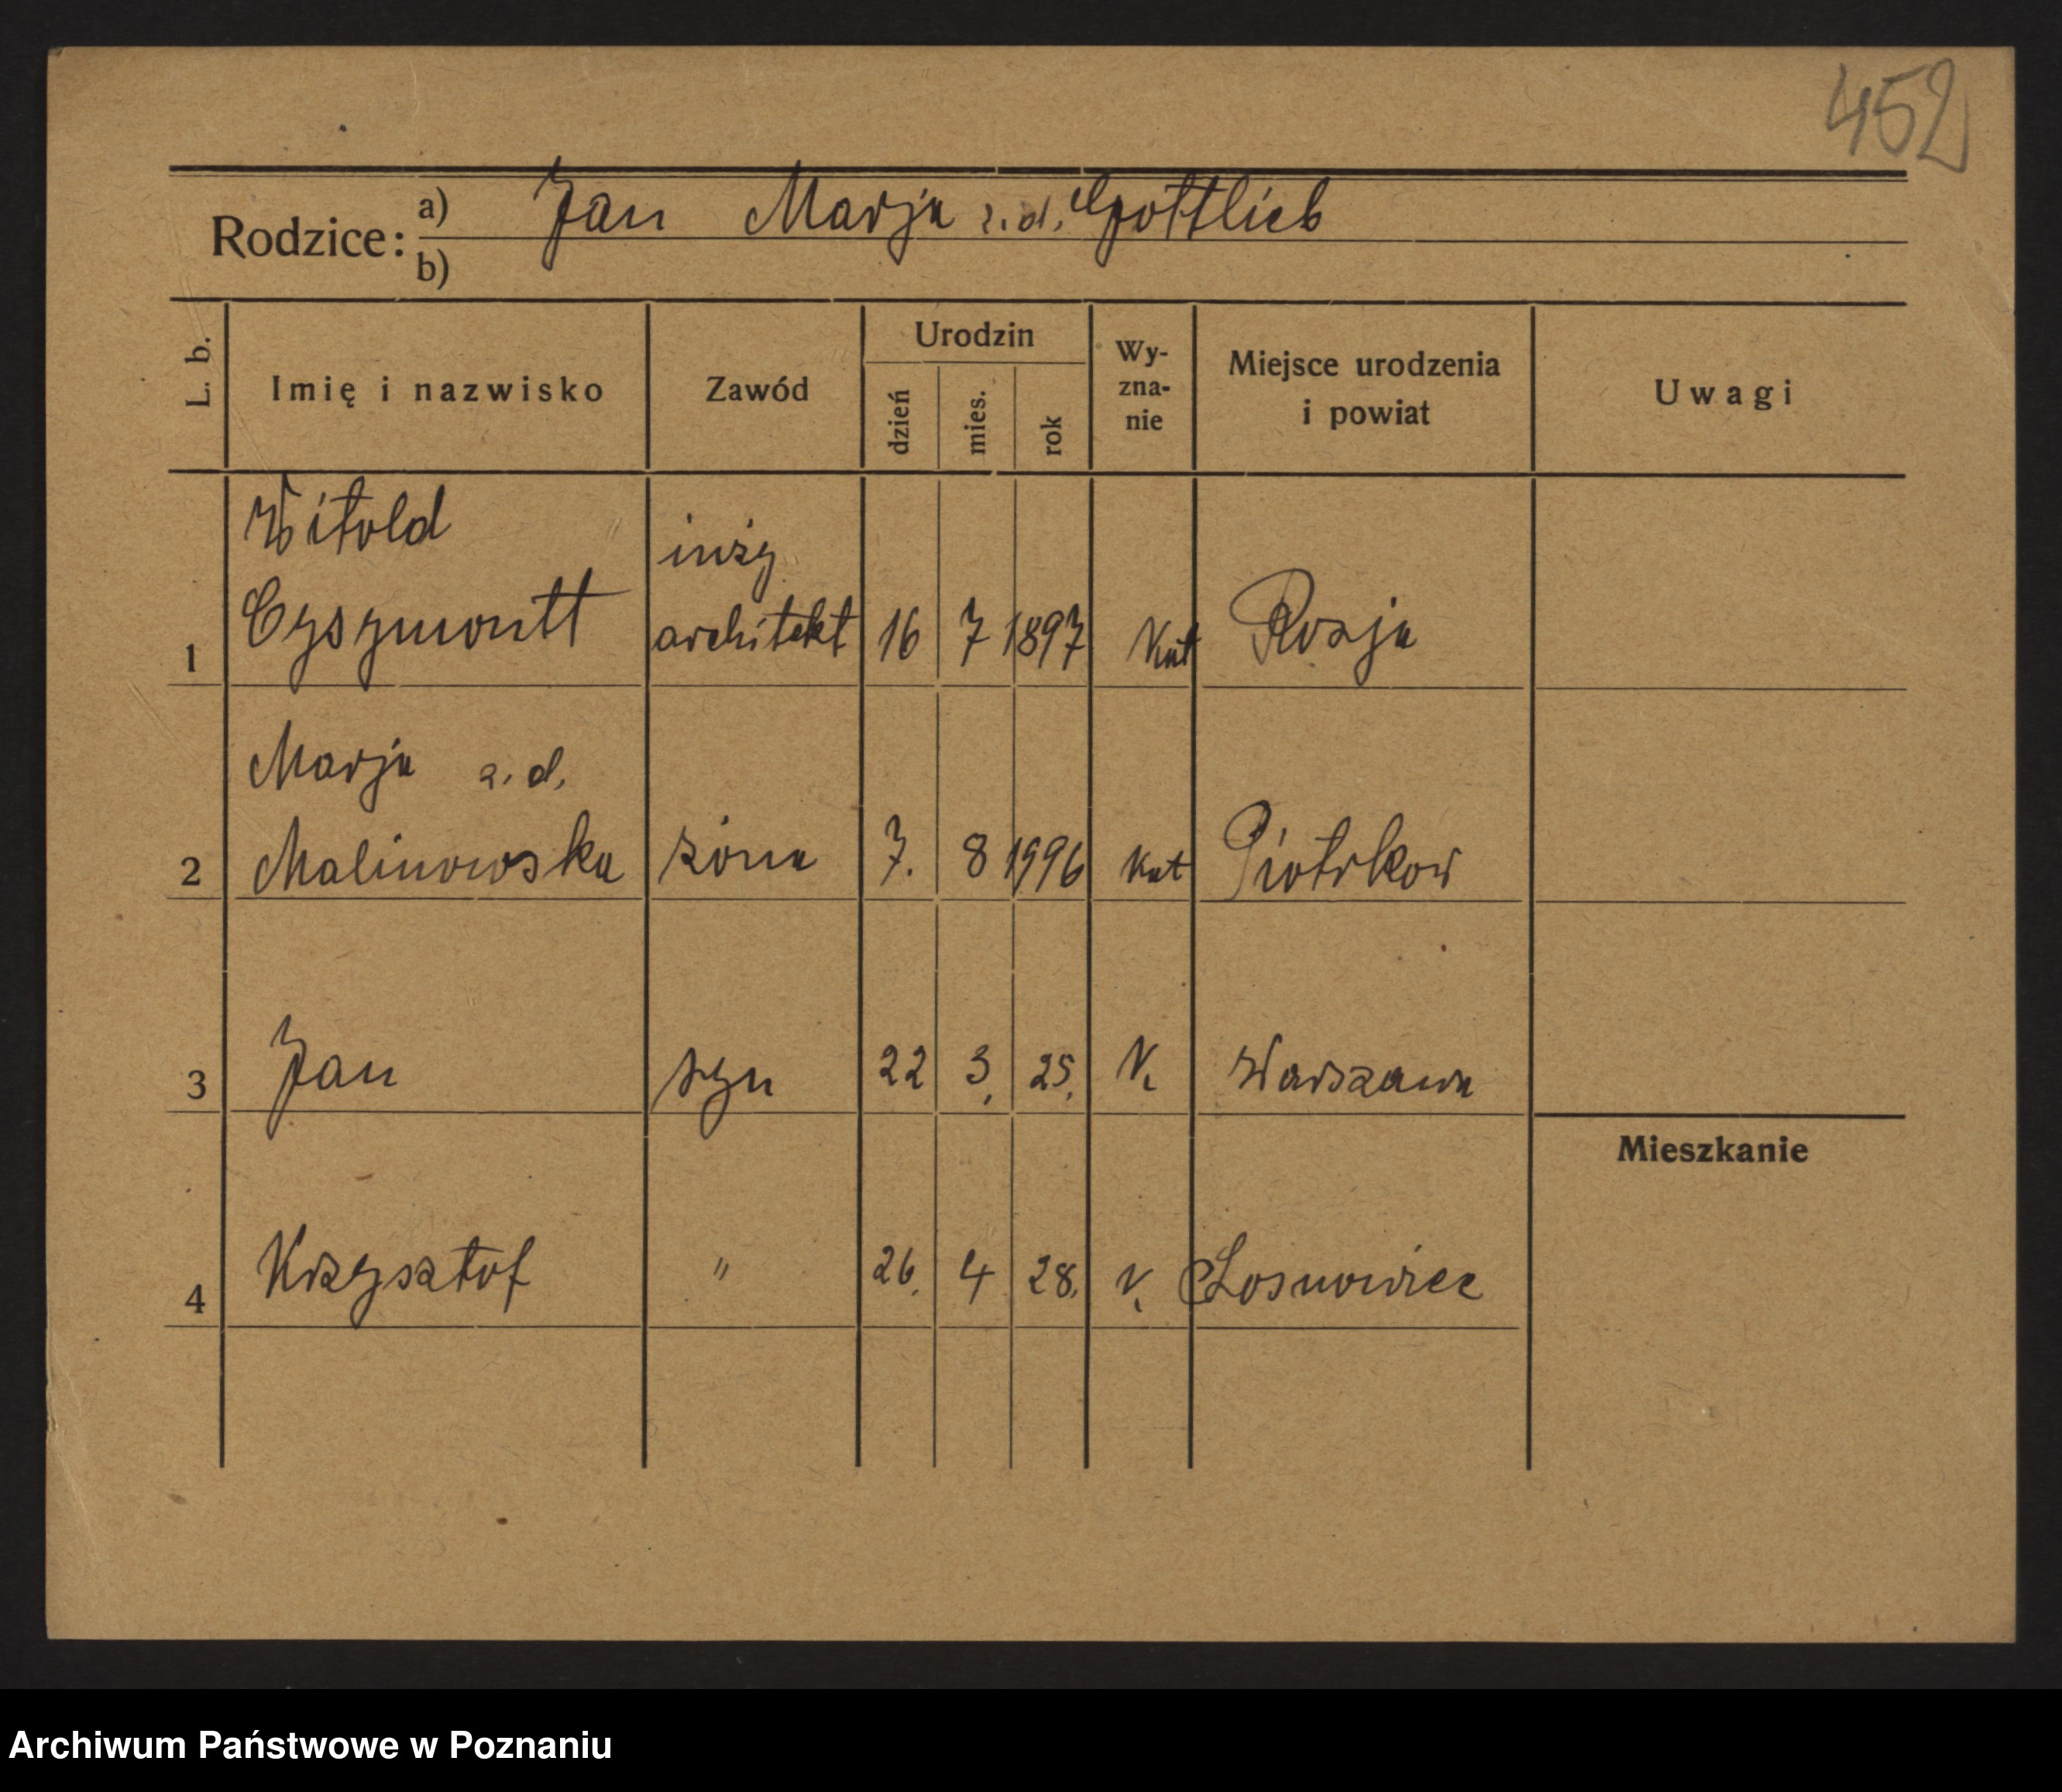 452
Rodzice: a) Jan Marja z. d. Gottlieb
b)
L. b. Imię i nazwisko Zawód Urodzin dzień mies. rok Wy-zna-nie Miejsce urodzenia i powiat Uwagi
Witold inży
1 Cyszymontt architekt 16 7 1897 Kat Rosja
Marja z. d.
2 Malinowska żona 7. 8 1996 Kat Piotrkow
3 Jan syn 22 3. 25. K. Warszawa
Mieszkanie
4 Krzysztof " 26. 4 28. K. Sosnowiec
Archiwum Państwowe w Poznaniu